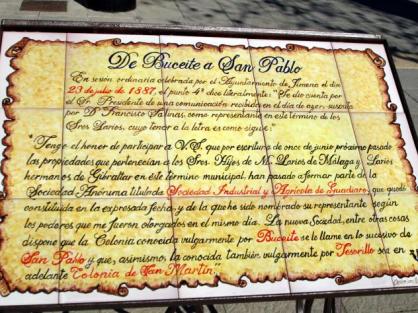 De Buceite a San Pablo
En sesión ordinaria celebrada por el Ayuntamiento de Jimena el día
23 de julio de 1887, el punto 4º dice literalmente: "Se dio cuenta por
el Sr. Presidente de una comunicación recibida en el día de ayer, suscrita
por D. Francisco Salinas, como representante en este término de los
Sres Larios, cuyo tenor a la letra es como sigue:
"Tengo el honor de participar a V.S. que por escritura de once de junio próximo pasado
las propiedades que pertenecían a los Sres. Hijos de M. Larios de Málaga y Larios
hermanos de Gibraltar en este término municipal, han pasado a formar parte de la
Sociedad Anónima titulada Sociedad Industrial y Agrícola de Guadiaro, que quedó
constituida en la expresada fecha, y de la que he sido nombrado su representante según
los poderes que me fueron otorgados en el mismo día. La nueva Sociedad, entre otras cosas
dispone que la Colonia conocida vulgarmente por Buceite se le llame en lo sucesivo de
San Pablo y que, asimismo, la conocida también vulgarmente por Tesorillo sea en
adelante Colonia de San Martín".